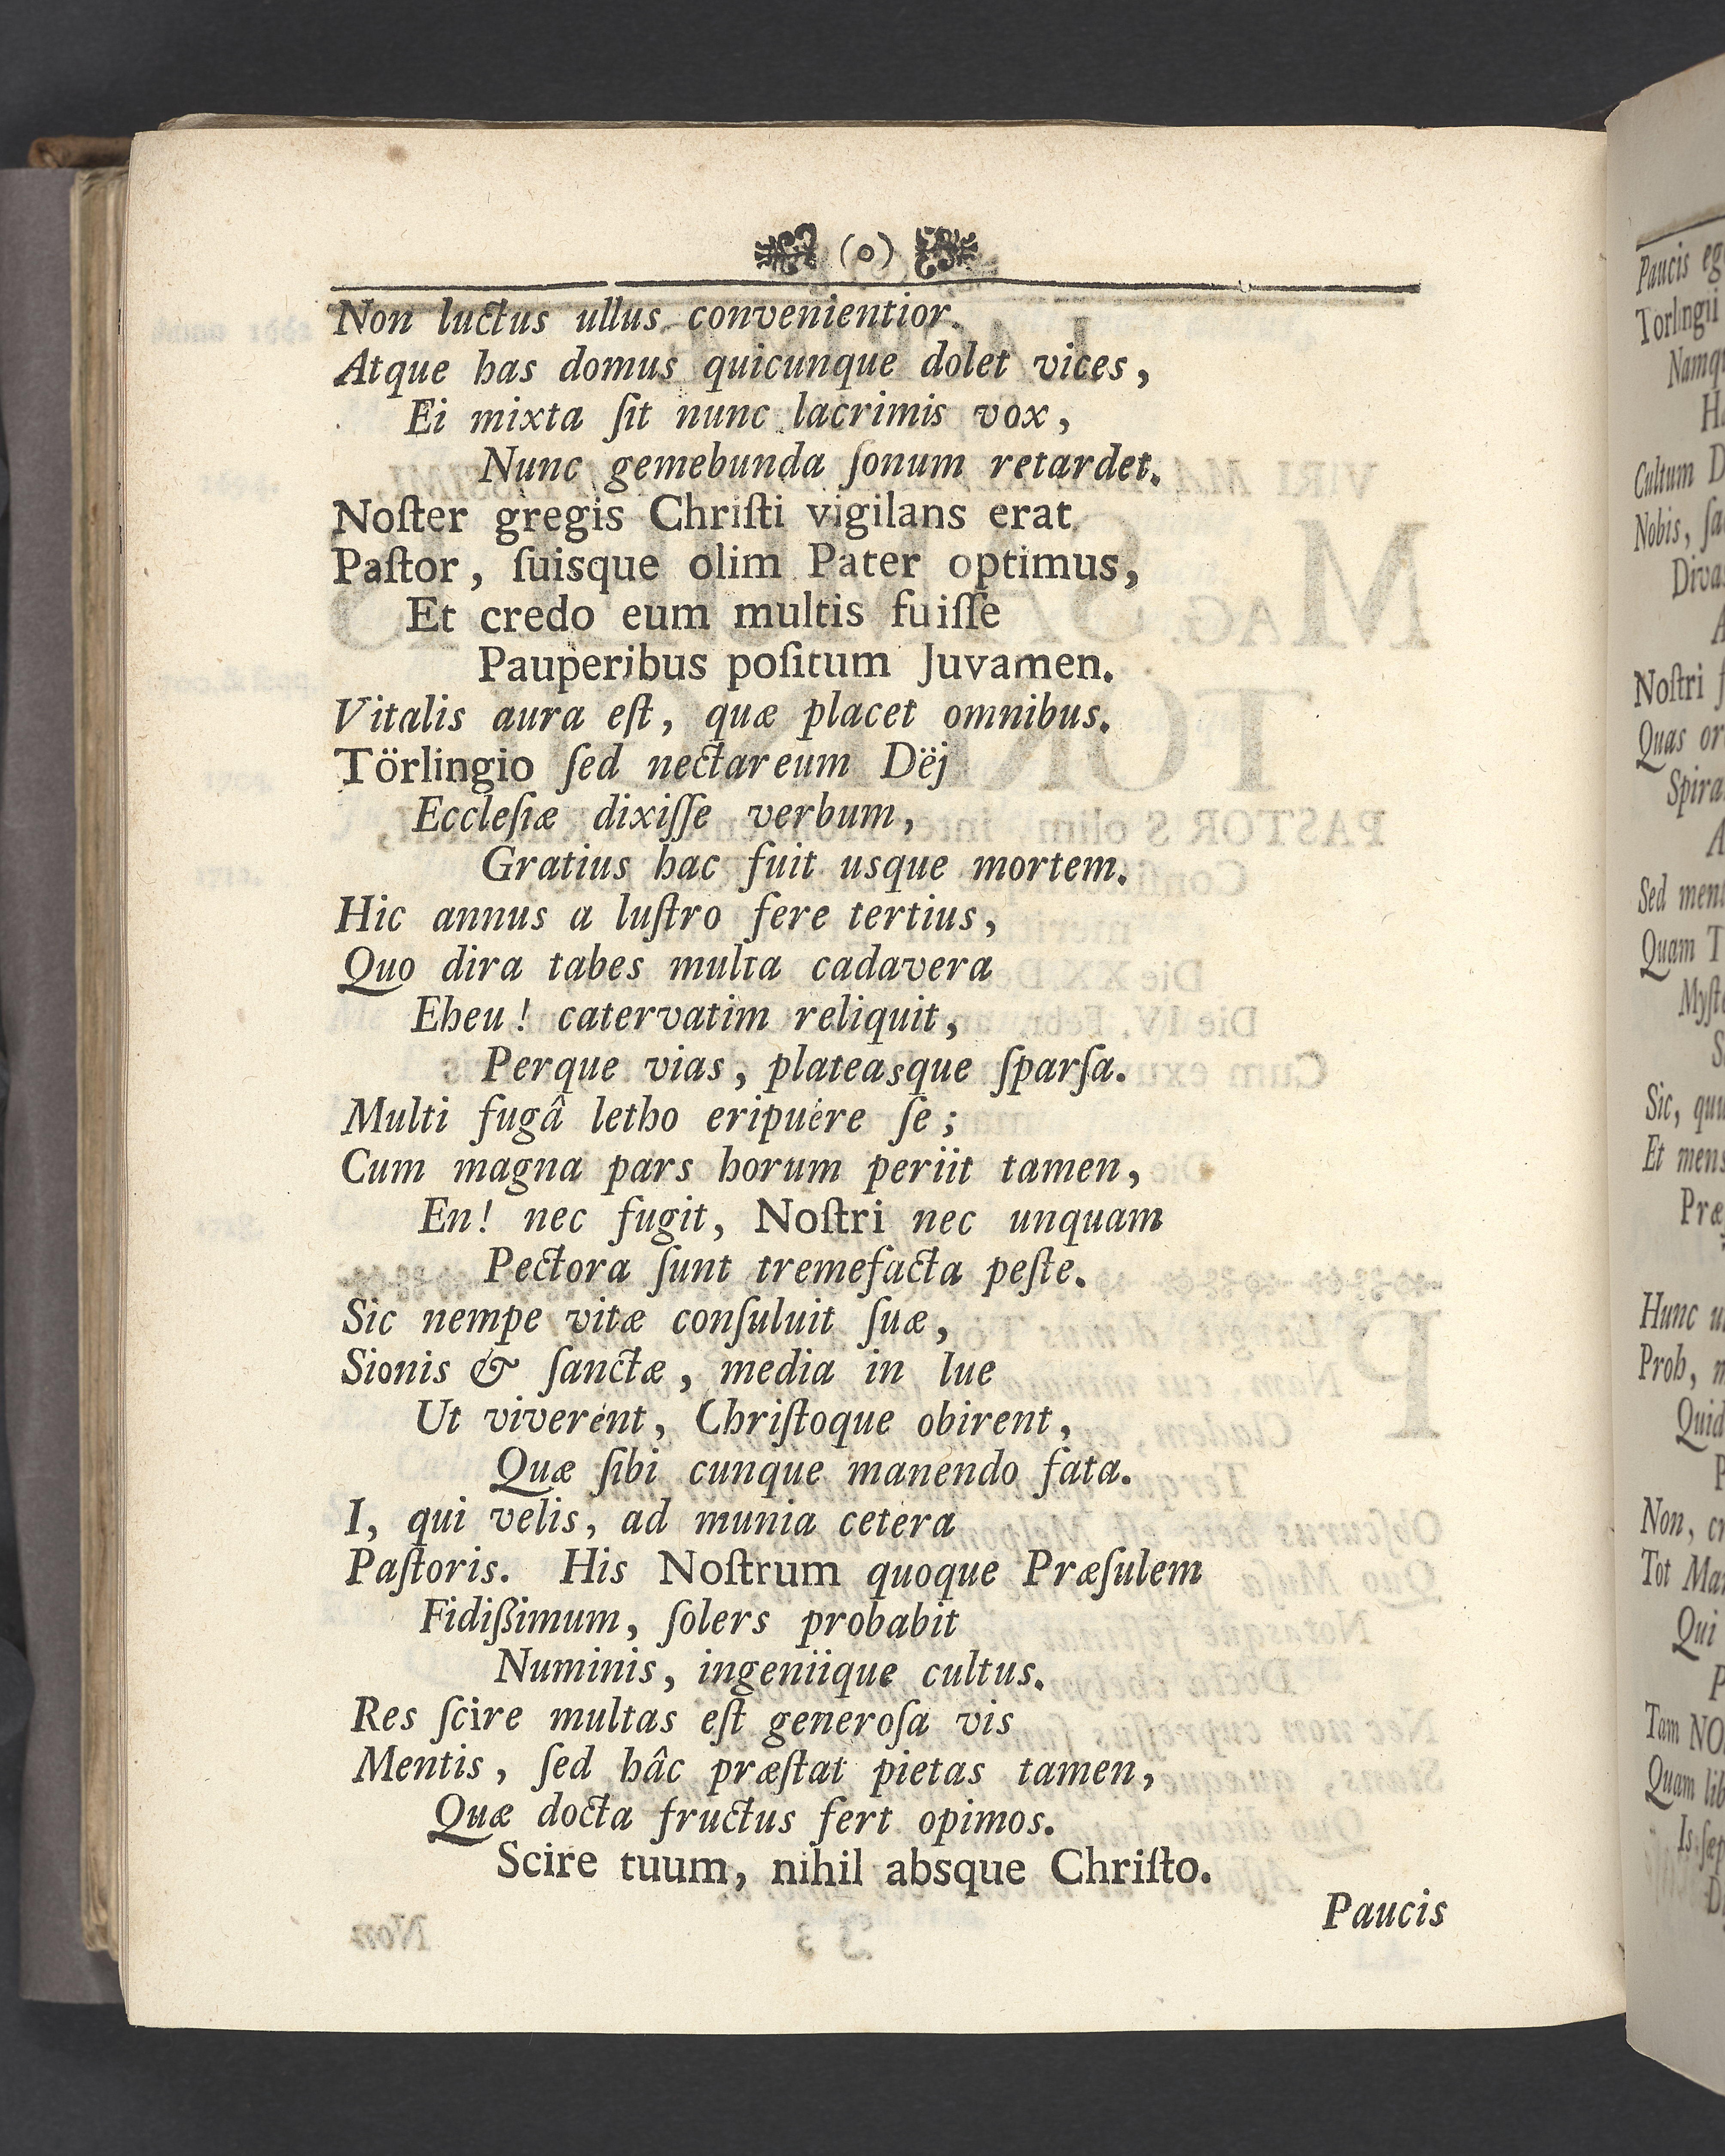 (o)
Non luctus ullus convenientior.
Atque has domus quicunque dolet vices,
Ei mixta ſit nunc lacrimis vox,
Nunc gemebunda ſonum retardet.
Noſter gregis Chriſti vigilans erat
Paſtor, ſuisque olim Pater optimus,
Et credo eum multis fuiſſe
Pauperibus poſitum Juvamen.
Vitalis aura eſt, quæ placet omnibus.
Törlingio ſed nectareum Dëj
Eccleſiæ dixiſſe verbum,
Gratius hac fuit usque mortem.
Hic annus a luſtro fere tertius,
Quo dira tabes multa cadavera
Eheu! catervatim reliquit,
Perque vias, plateasque ſparſa.
Multi fugâ letho eripuére ſe;
Cum magna pars horum periit tamen,
En! nec fugit, Noſtri nec unquam
Pectora ſunt tremefacta peſte.
Sic nempe vitæ conſuluit ſuæ,
Sionis & ſanctæ, media in lue
Ut viverent, Chriſtoque obirent,
Quæ ſibi cunque manendo fata.
I, qui velis, ad munia cetera
Paſtoris. His Noſtrum quoque Præſulem
Fidißimum, ſolers probabit
Numinis, ingeniique cultus.
Res ſcire multas eſt generoſa vis
Mentis, ſed hâc præſtat pietas tamen,
Quæ docta fructus fert opimos.
Scire tuum, nihil absque Chriſto.
Paucis
Paucis
Torlingii
Cultum D
Nobis, ſa
Noſtri
Quas
Sed
Quam T
Sic,
Et mens
Præ
Hunc
Quid
Non,
Tot
Qui
Tam
Quam